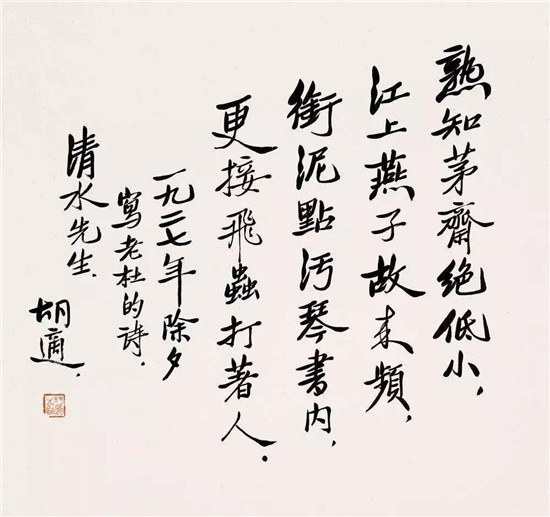 熟知茅齋絕低小，
江上燕子故来頻，
銜泥點污琴書內，
更接飛蟲打著人．
一九二七年除夕
寫老杜的詩．
清水先生．
胡適．